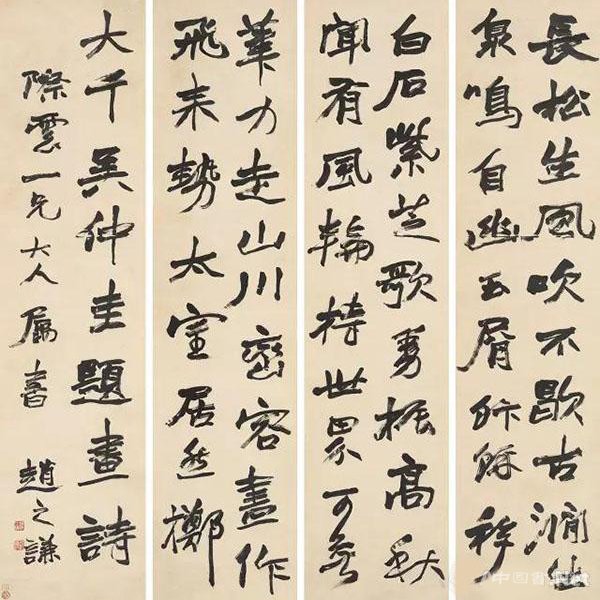 長松生風吹不歇古澗仙
泉鳴自幽玉屑餘
白石紫芝歌振高秋
聞有風輪持世界可無
筆力走山川巒容盡作
飛來勢太室居然擲
大千吳仲圭題畫詩
際雲一兄大人屬書 趙之謙